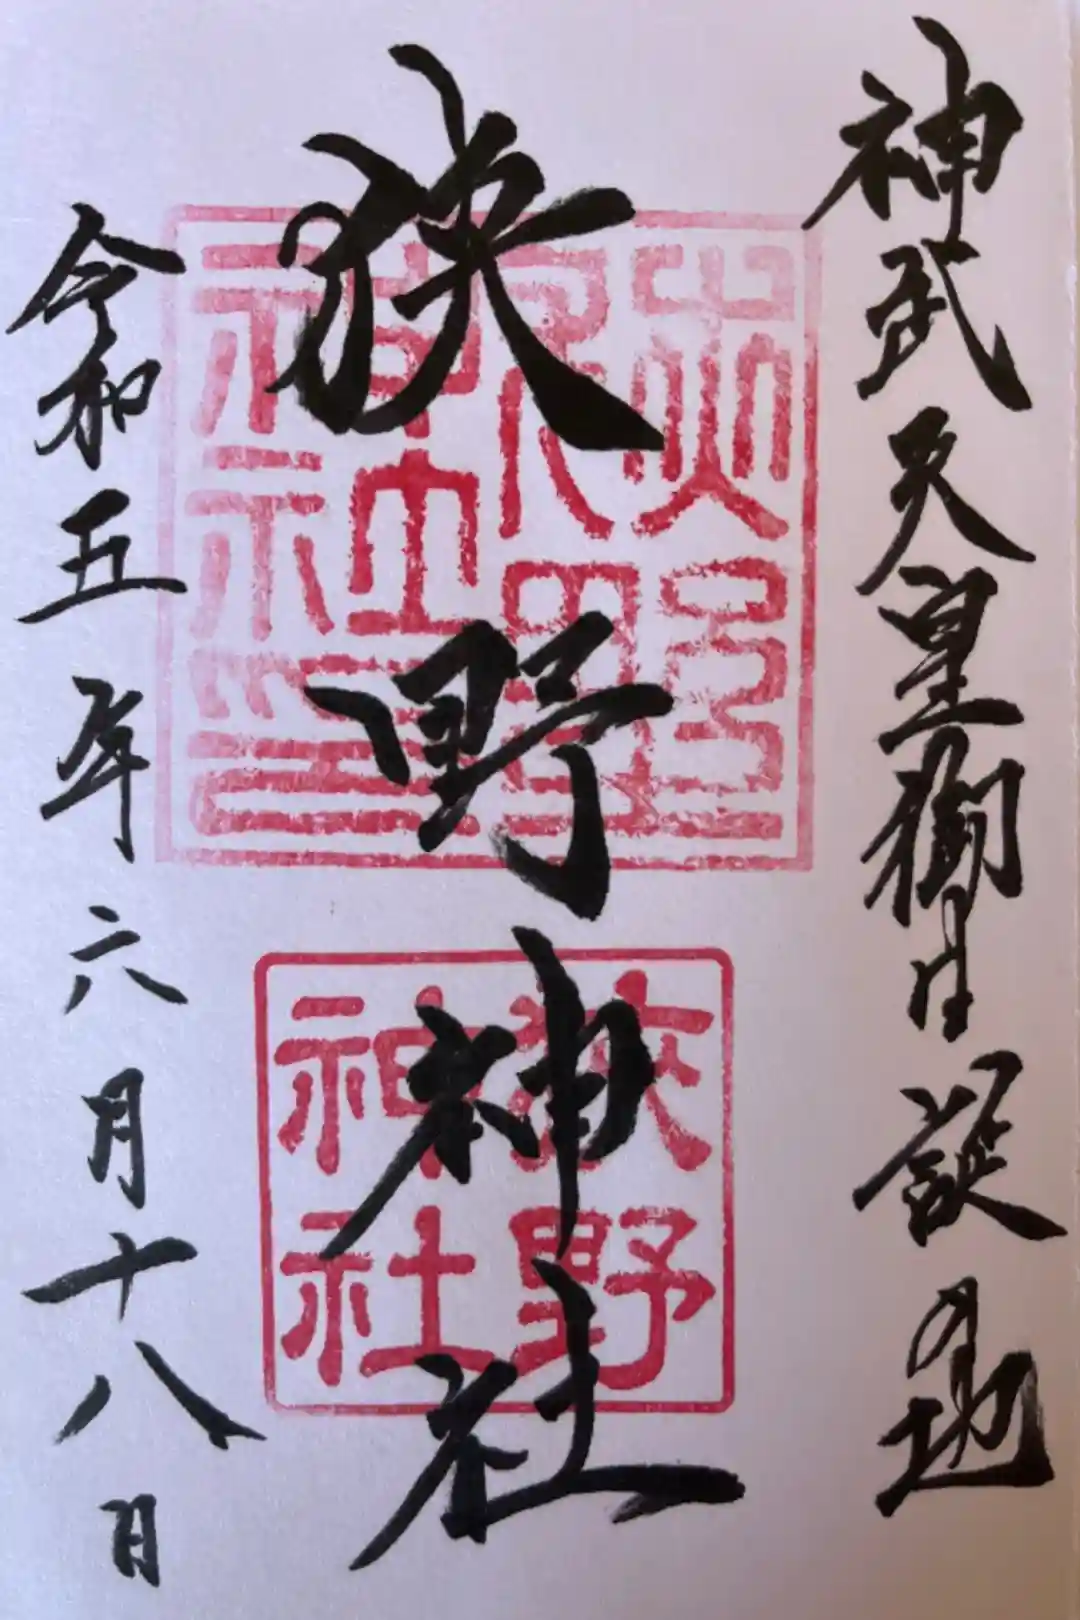 神武天皇御誕の地
狭野神社
令和五年六月十八日
狭野
神社